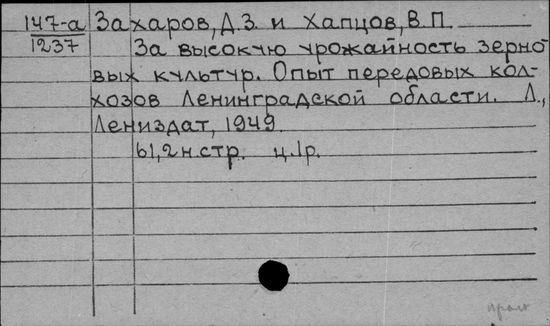 147-а Захаров, Д.З. и Хапцов, В.П.
1237 За высокую урожайность зерно
вых культур. Опыт передовых кол-
хозов Ленинградской области. Л.,
Лениздат, 1949.
61,2 н.стр. ц.1р.